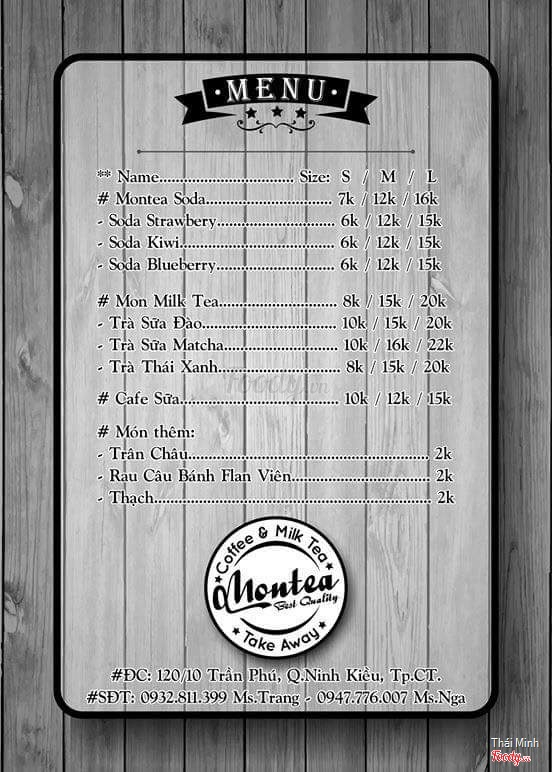 MENU
** Name................................. Size: S / M / L
# Montea Soda............................... 7k / 12k / 16k
- Soda Strawbery............................. 6k / 12k / 15k
- Soda Kiwi...................................... 6k / 12k / 15k
- Soda Blueberry............................. 6k / 12k / 15k
# Mon Milk Tea............................. 8k / 15k / 20k
- Trà Sữa Đào................................. 10k / 15k / 20k
- Trà Sữa Matcha............................ 10k / 16k / 22k
- Trà Thái Xanh.............................. 8k / 15k / 20k
foody.vn
# Cafe Sữa....................................... 10k / 12k / 15k
# Món thêm:
- Trân Châu........................................................... 2k
- Rau Câu Bánh Flan Viên.................................. 2k
- Thạch.................................................................... 2k
Coffee & Milk Tea
Montea
Best Quality
Take Away
#ĐC: 120/10 Trần Phú, Q.Ninh Kiều, Tp.CT.
#SĐT: 0932.811.399 Ms.Trang - 0947.776.007 Ms.Nga
Thái Minh
Foody.vn